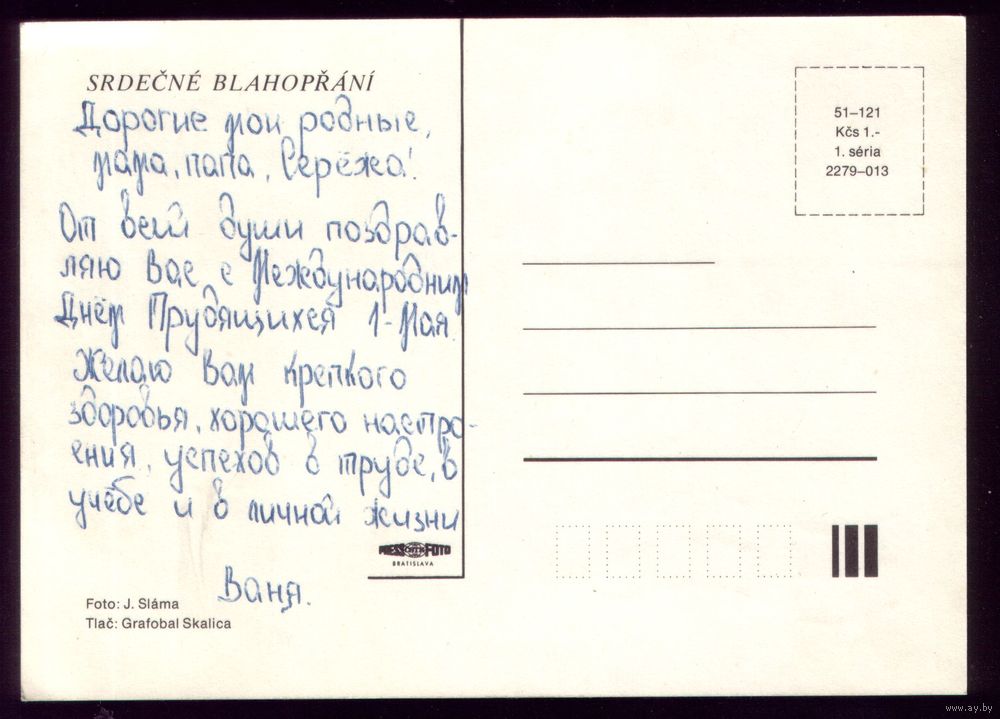 SRDEČNÉ BLAHOPŘÁNÍ
Дорогие мои родные,
мама, папа, Серёжа!
От всей души поздрав-
ляю Вас с Международним
Днём Трудящихся 1-Мая.
Желаю Вам крепкого
здоровья, хорошего настро-
ения, успехов в труде, в
учёбе и в личной жизни
Ваня.
PRESSFOTO
BRATISLAVA
Foto: J. Sláma
Tlač: Grafobal Skalica
51–121
Kčs 1.-
1. séria
2279–013
www.ay.by